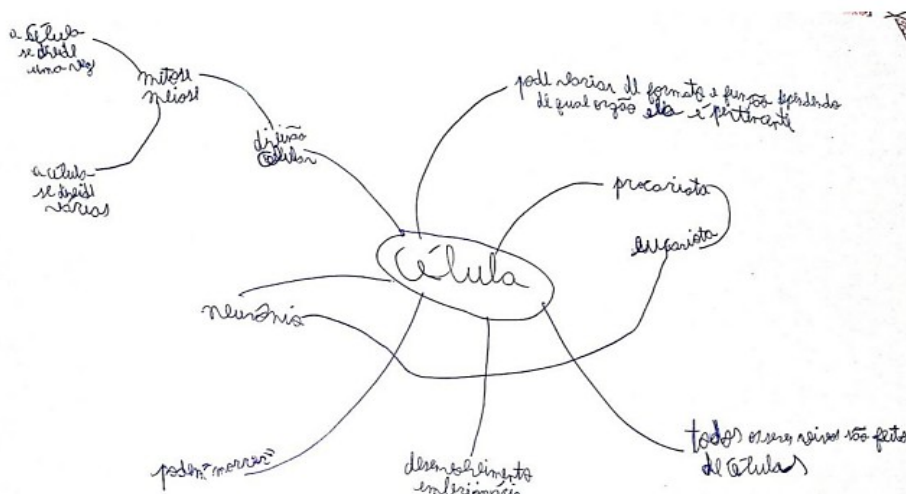 a célula
se divide
uma vez
mitose
meiose
a célula
se divide
várias
divisão
celular
pode variar de formato e função dependendo
de qual orgão ela é pertinente
procariota
eucariota
Célula
neurônio
podem "morrer"
desenvolvimento
embrionário
todos os seres vivos são feitos
de células